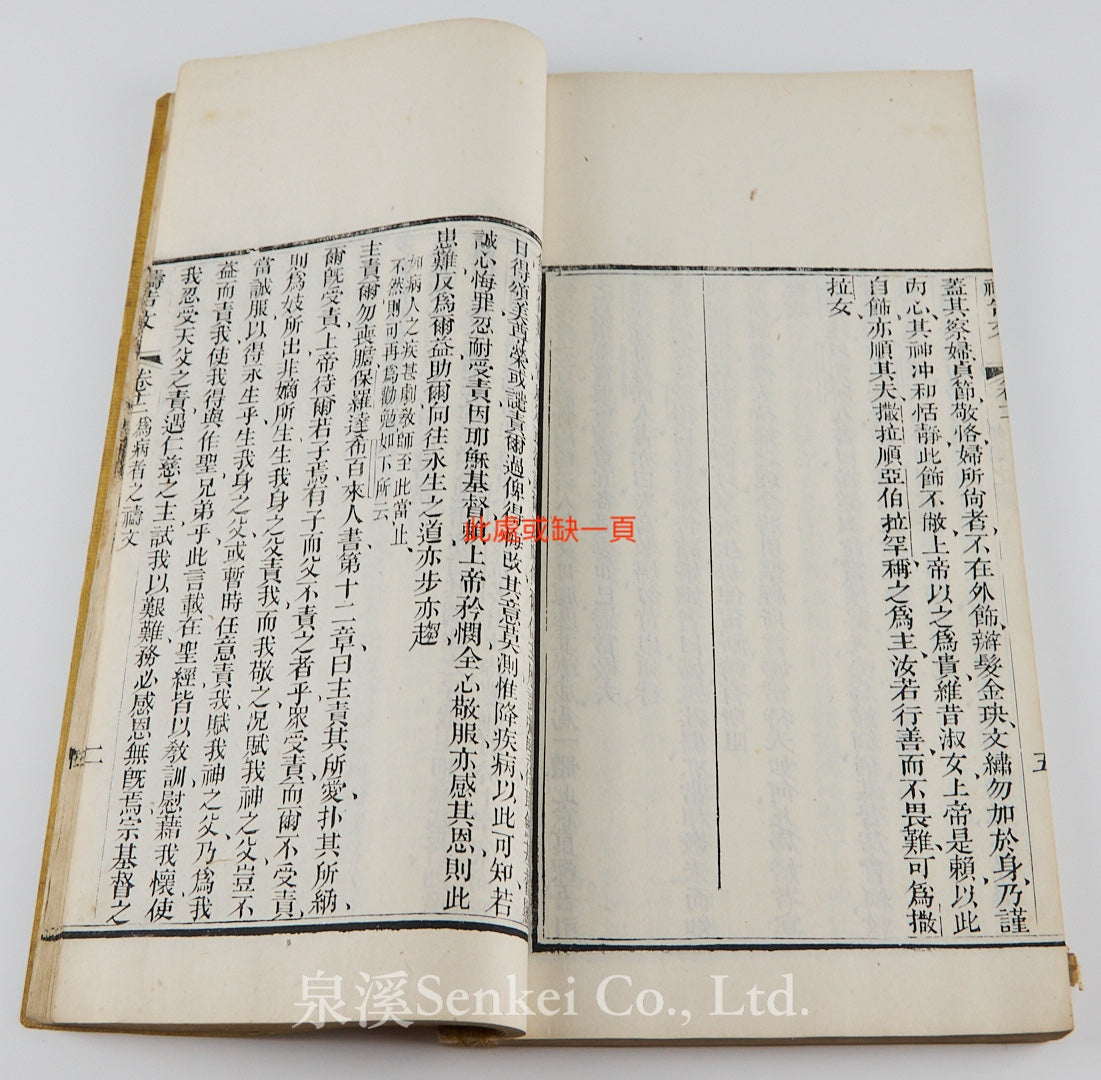 禱告文
五
蓋其察婦貞節、敬恪、婦所尙者、不在外飾、辮髮、金珙、文繡、勿加於身、乃謹
內心、其神冲和恬靜、此飾不敝、上帝以之爲貴、維昔淑女、上帝是賴、以此
自飾、亦順其夫、撒拉順亞伯拉罕、稱之爲主、汝若行善、而不畏難、可爲撒
拉女、
日得頌美尊榮、或譴責爾過、俾得悔改、其意莫測、惟降疾病、以此可知、若
誠心悔罪、忍耐受責、因耶穌基督、賴上帝矜憫、全心敬服、亦感其恩、則此
患難、反爲爾益、助爾向往永生之道、亦步亦趨、
如病人之疾甚劇、敎師至此當止、
不然則可再爲勸勉如下所云、
主責爾、勿喪膽、保羅達希百來人書、第十二章曰、主責其所愛、扑其所納、
爾旣受責、上帝待爾若子焉、有子而父不責之者乎、衆受責、而爾不受責、
則爲妓所出、非嫡所生、生我身之父責我、而我敬之、况賦我神之父、豈不
當誠服、以得永生乎、生我身之父、或暫時任意責我、賦我神之父、乃爲我
益而責我、使我得與作聖、兄弟乎、此言載在聖經、皆以敎訓慰藉我懷、使
我忍受天父之責、遇仁慈之主、試我以艱難、務必感恩無旣焉、宗基督之
禱告文
卷十二 爲病者之禱文
二
此處或缺一頁
泉溪Senkei Co., Ltd.